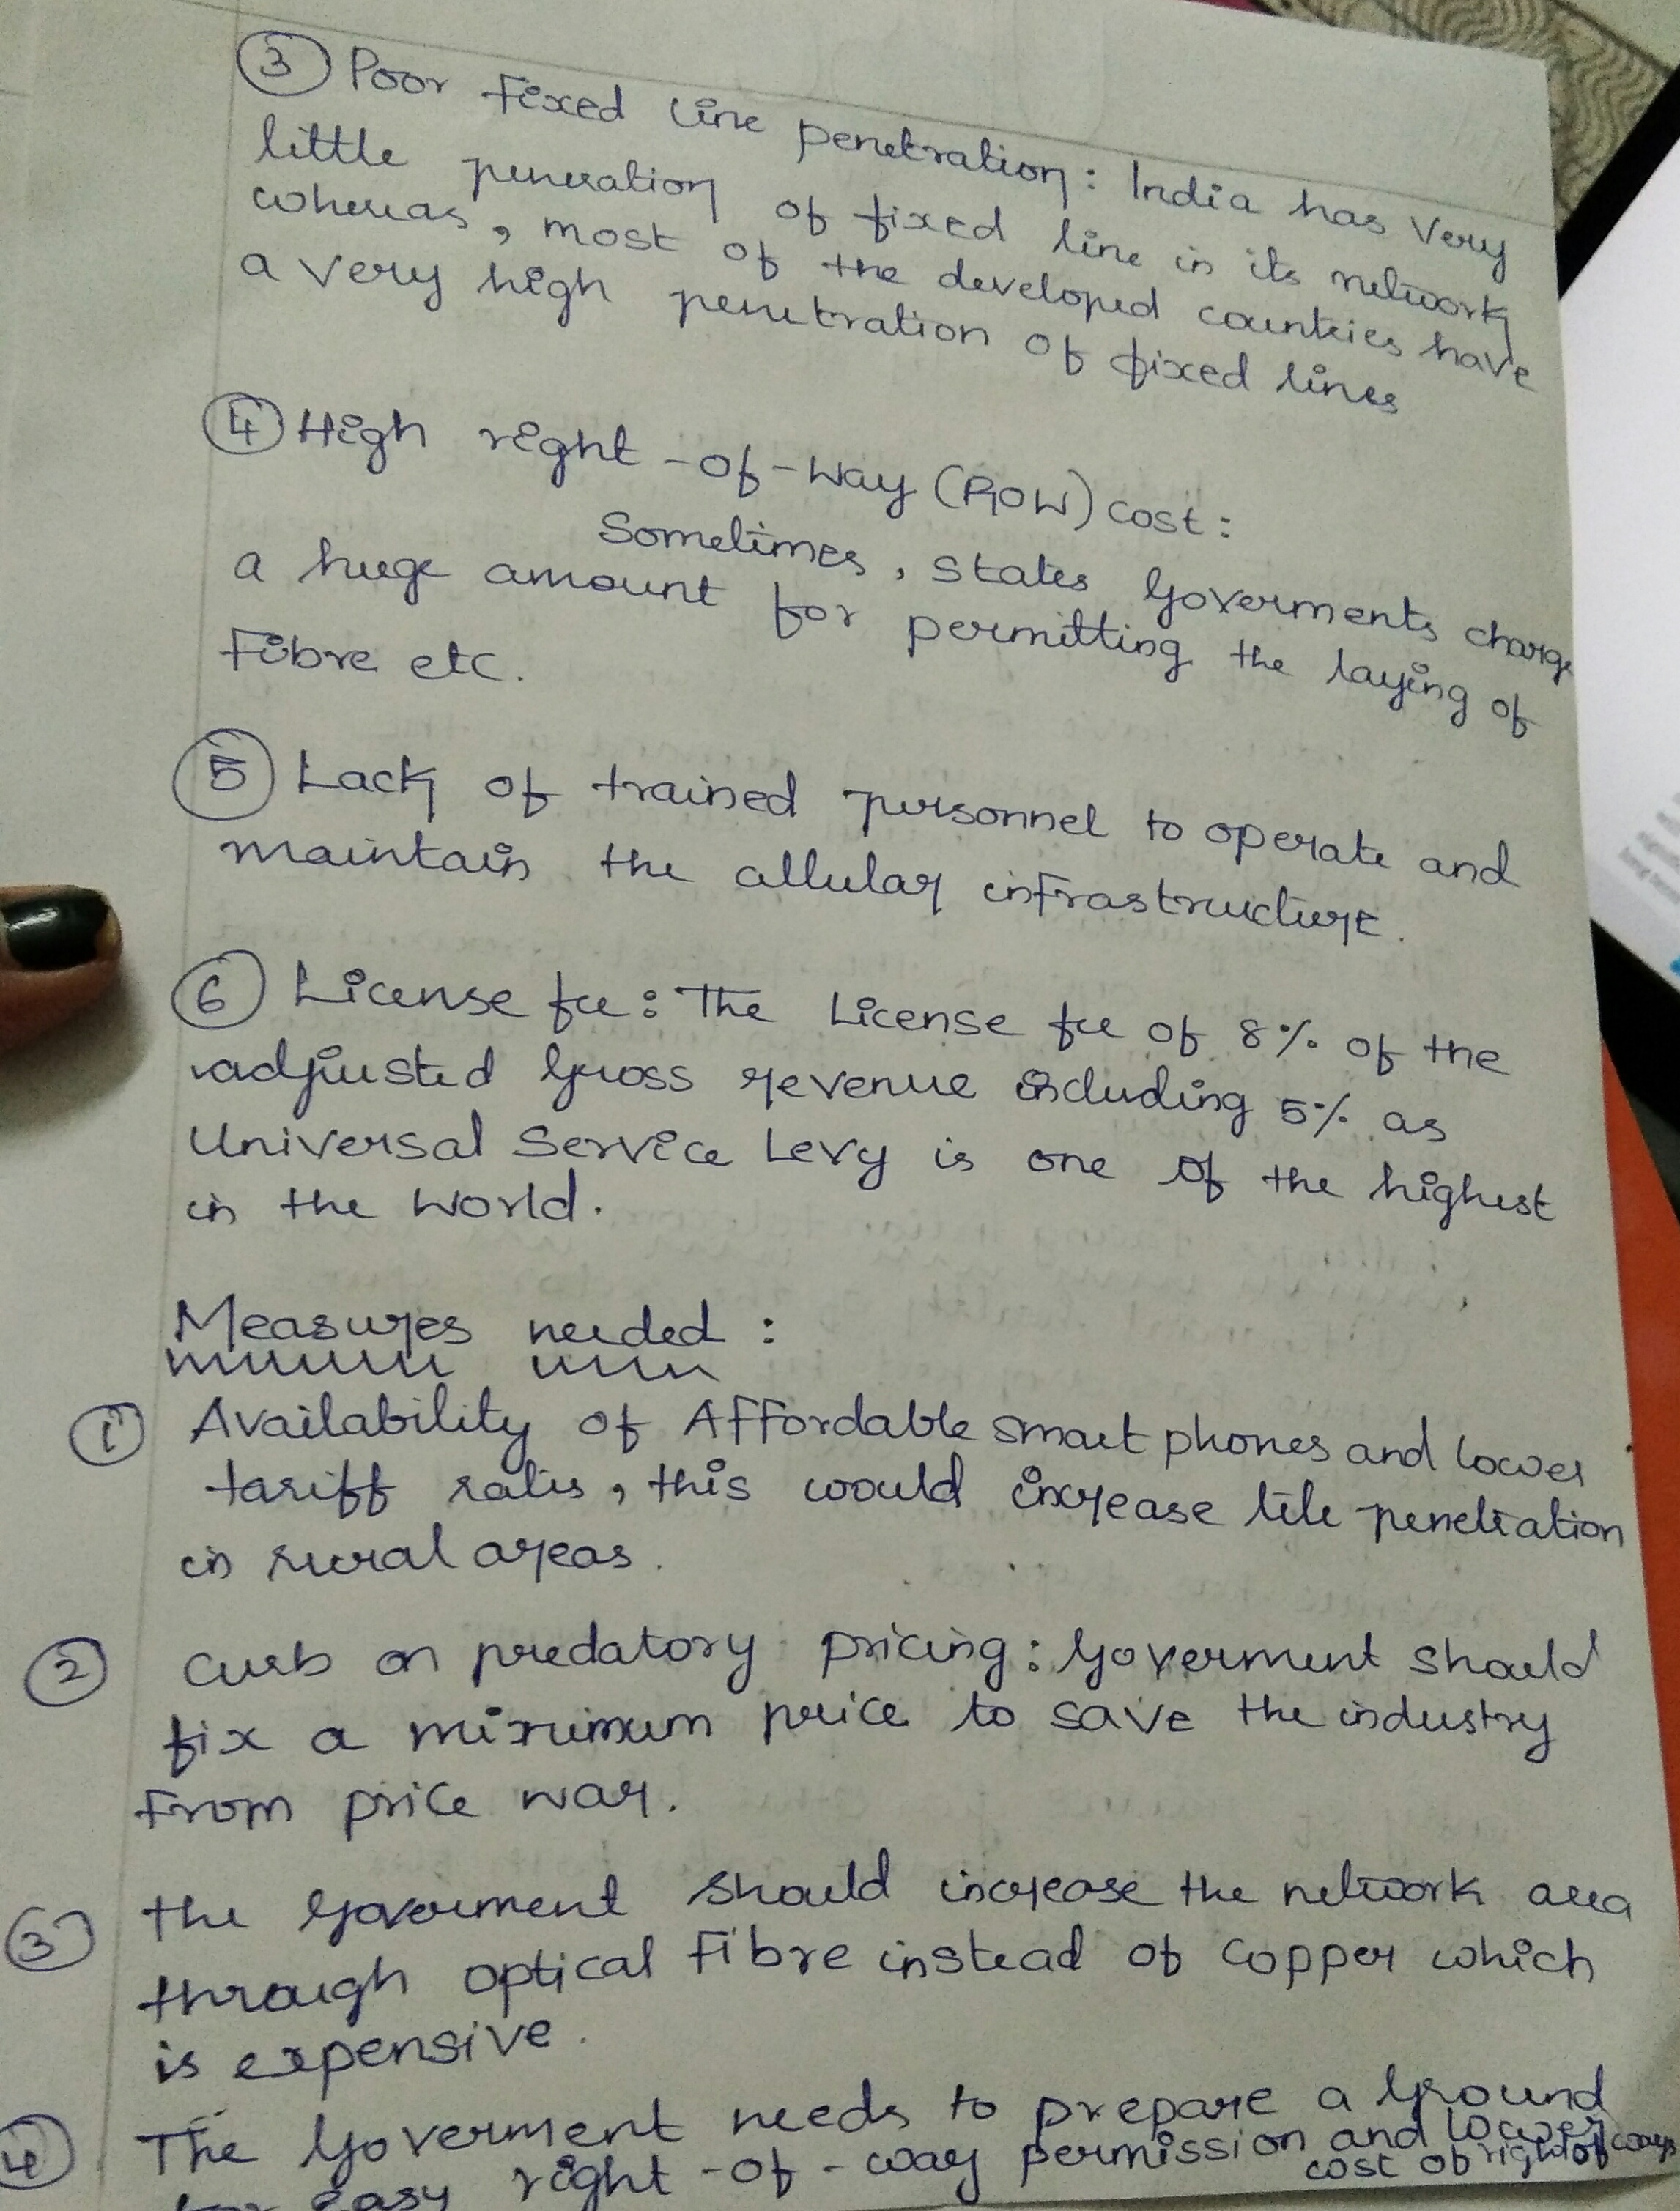 ③ Poor Fixed Line penetration: India has very
little peneration of fixed line in its network
whereas, most of the developed countries have
a very high penetration of fixed lines
④ High right-of-way (ROW) cost:
Sometimes, states Goverments charge
a huge amount for permitting the laying of
Fibre etc.
⑤ Lack of trained personnel to operate and
maintain the cellular infrastructure.
⑥ License fee: The License fee of 8% of the
adjusted Gross revenue including 5% as
Universal Service Levy is one of the highest
in the world.
Measures needed :
① Availability of Affordable smart phones and lower
tariff rates, this would increase tele penetration
in rural areas.
② Curb on predatory pricing: Goverment should
fix a minimum price to save the industry
From price war.
③ the Goverment should increase the network area
through optical Fibre instead of copper which
is expensive.
④ The Goverment needs to prepare a Ground
for easy right-of-way permission and lower
cost of right of ways